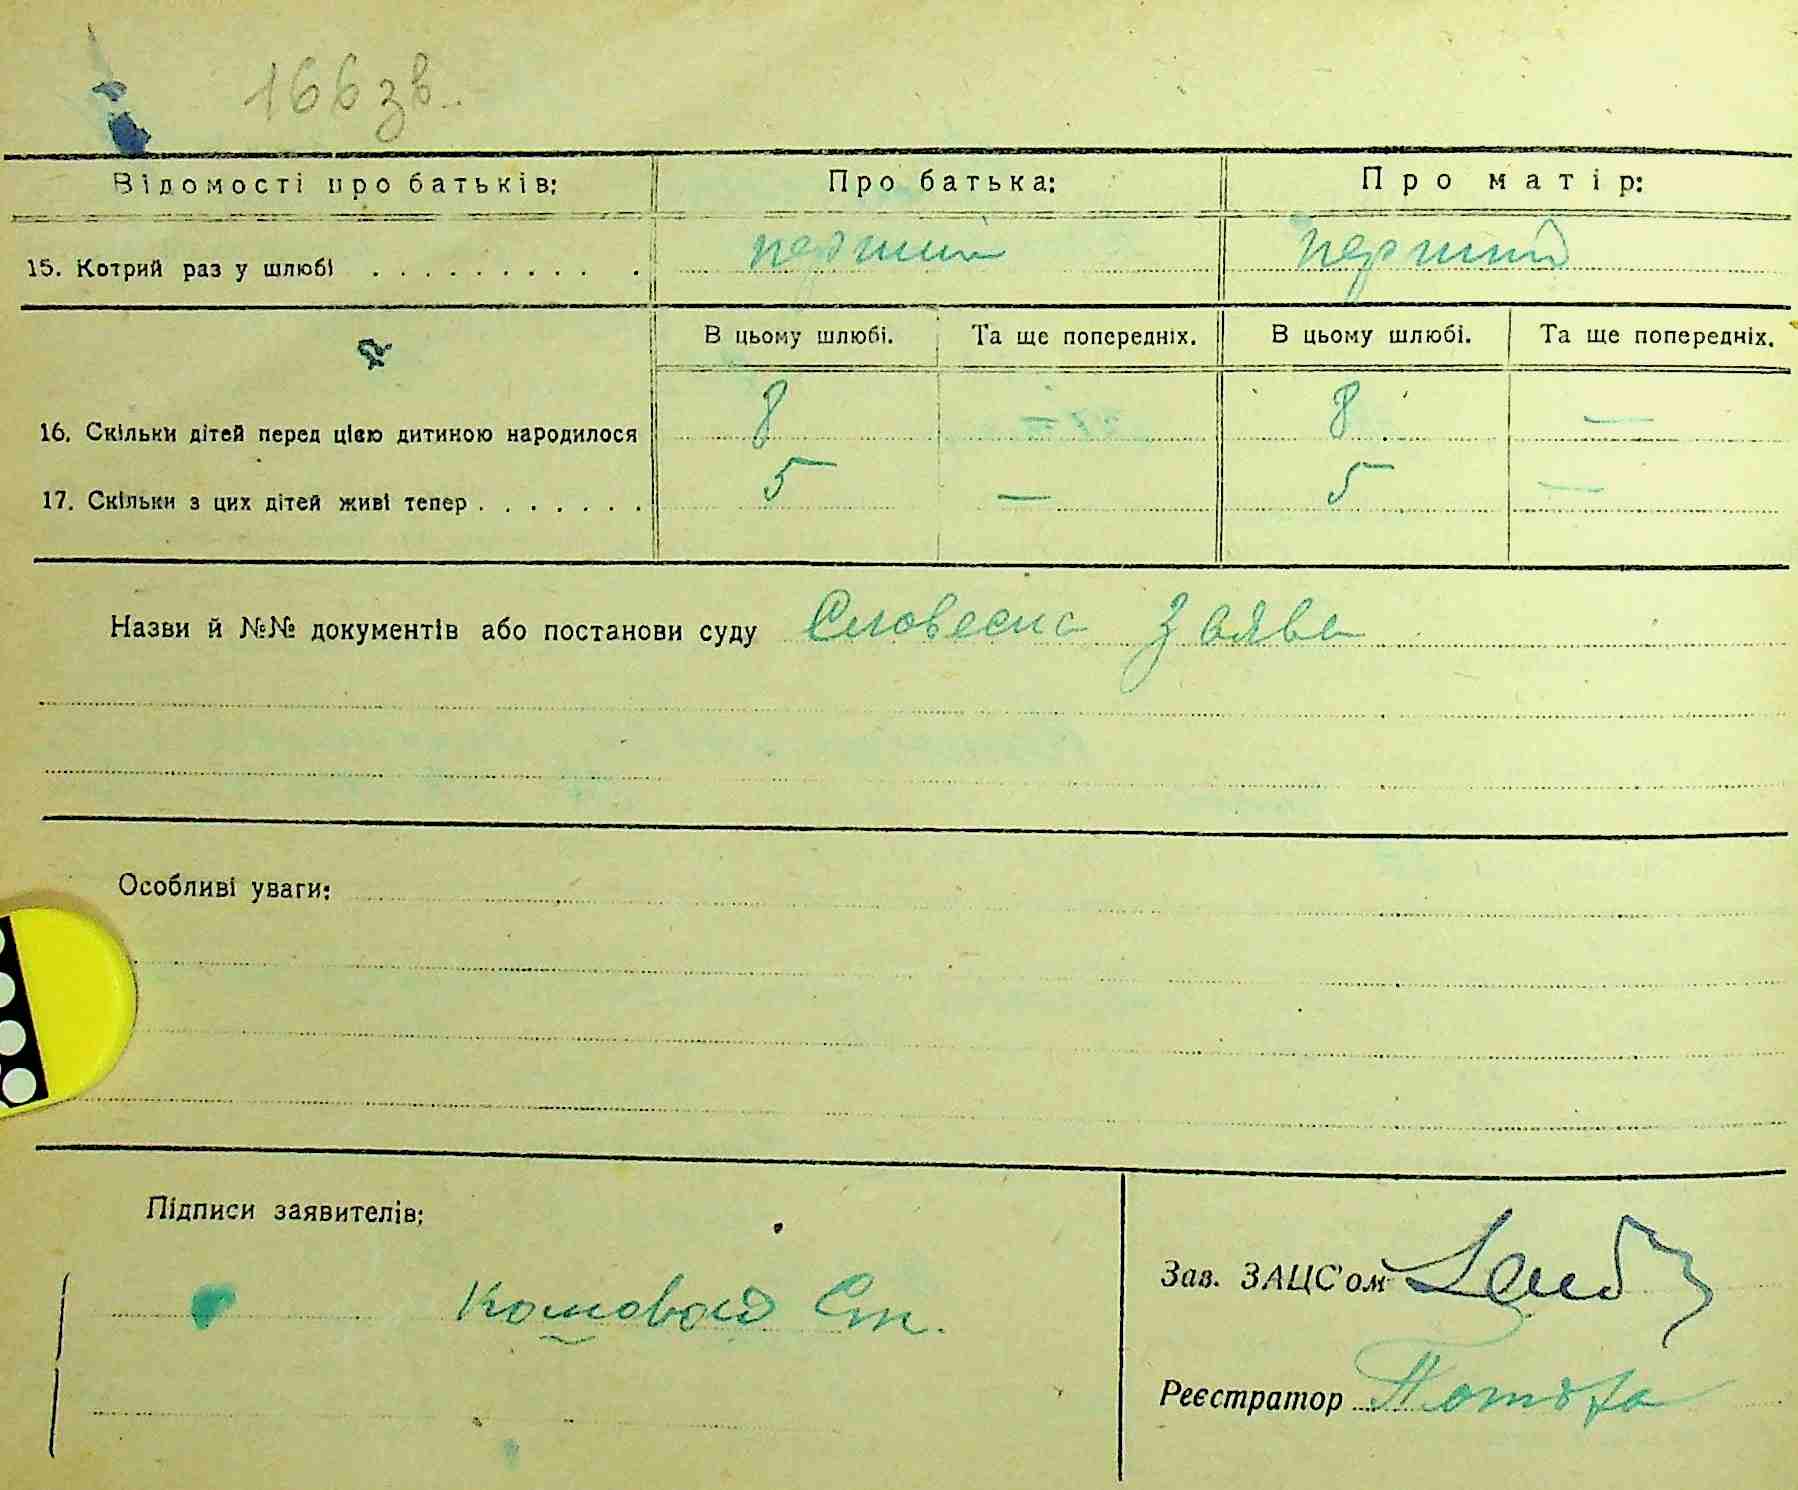 166 зв.
Відомості про батьків: Про батька: Про матір:
15. Котрий раз у шлюбі . . . . . . . . . . перший перший
В цьому шлюбі. Та ще попередніх. В цьому шлюбі. Та ще попередніх.
16. Скільки дітей перед цією дитиною народилося 8 — 8 —
17. Скільки з цих дітей живі тепер . . . . . . . 5 — 5 —
Назви й №№ документів або постанови суду Словесна заява
Особливі уваги:
Підписи заявителів:
Зав. ЗАЦС'ом
Ст.
Реєстратор